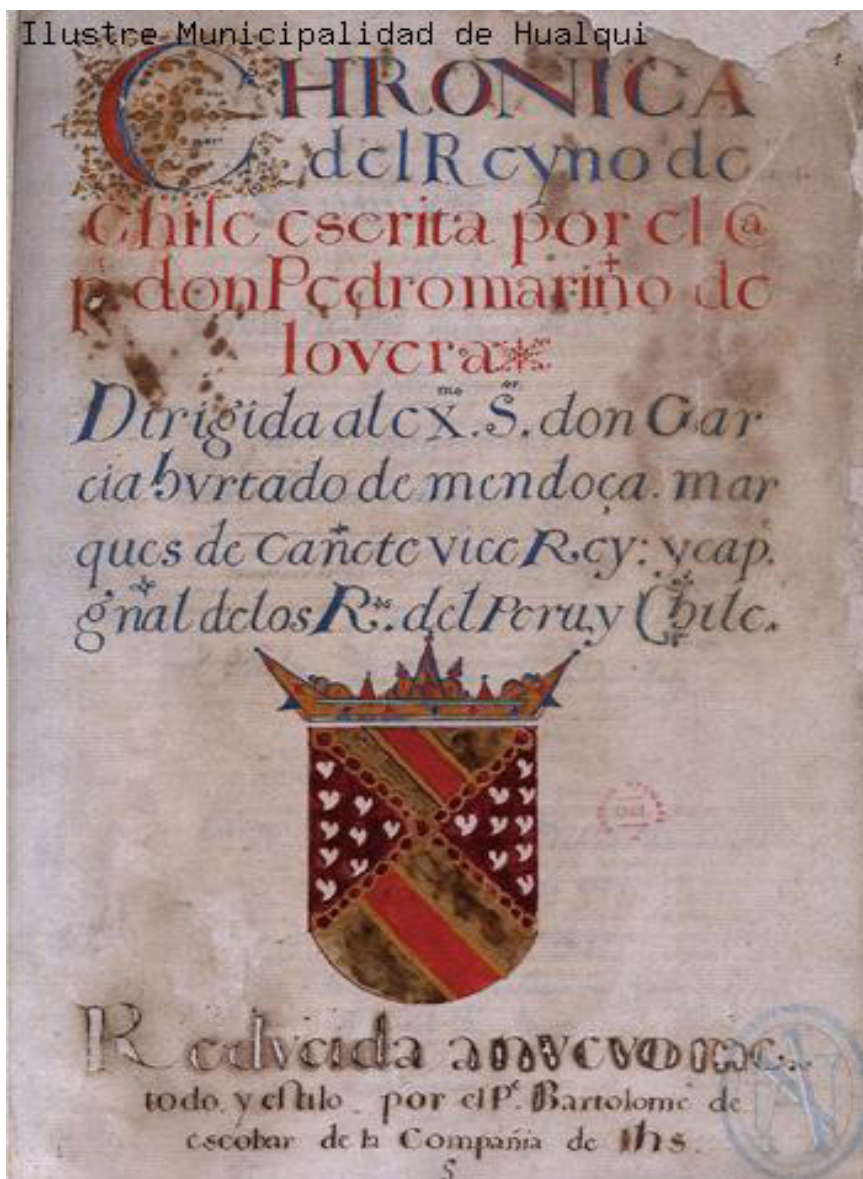 Ilustre Municipalidad de Hualqui
CHRONICA
del Reyno de
Chile escrita por el @
p. don Pedro mariño de
lovera
Dirigida al ex.mo S.or don Gar
cia hurtado de mendoça. mar
ques de Cañete vice Rey: y cap.
gñal delos R.s del Peru y Chile.
Redvcida a nvevo me
todo. y estilo. por el P.e Bartolome de
escobar de la Compañia de ihs.